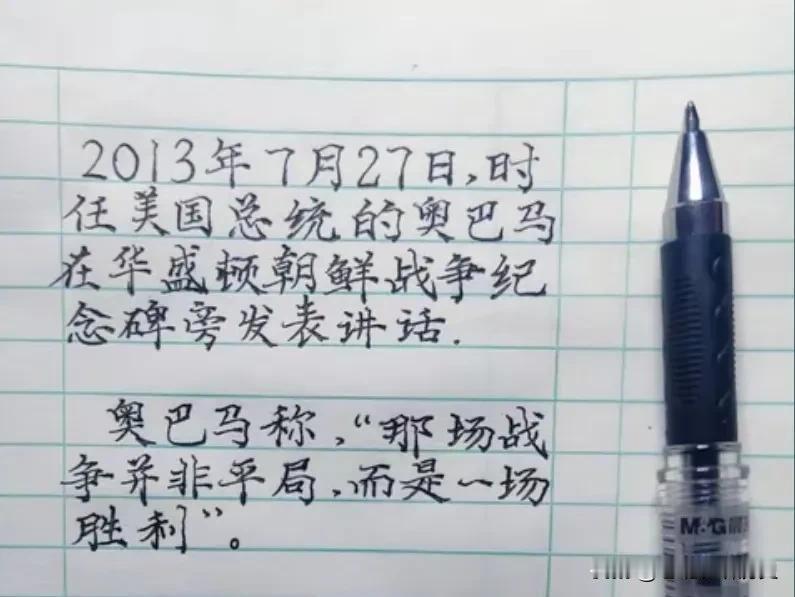 2013年7月27日,时
任美国总统的奥巴马
在华盛顿朝鲜战争纪
念碑旁发表讲话.
奥巴马称,“那场战
争并非平局,而是一场
胜利”。
M&G